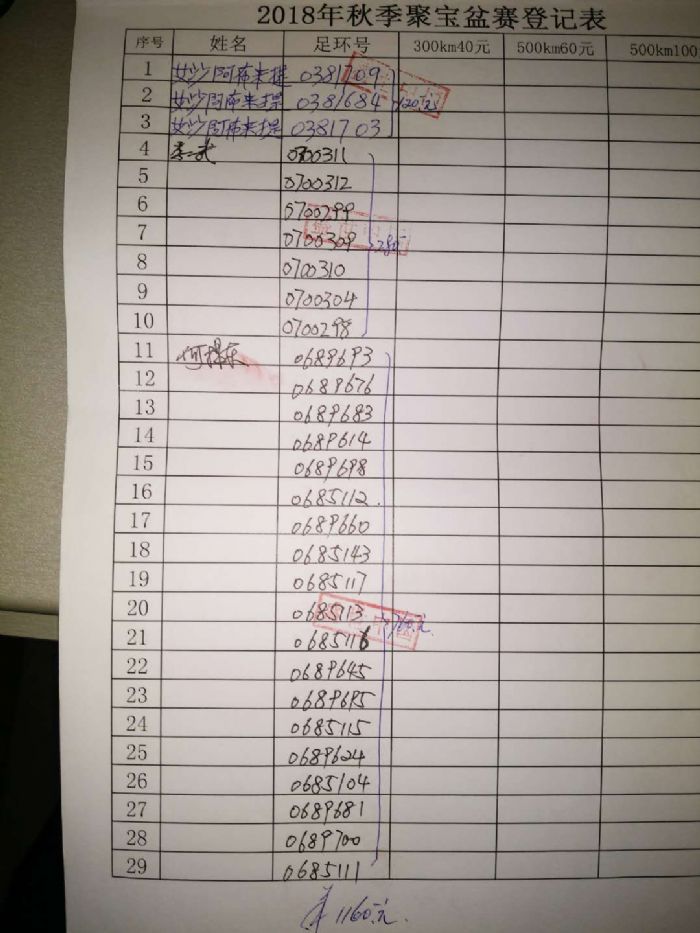 2018年秋季聚宝盆赛登记表
序号 姓名 足环号 300km40元 500km60元 500km100
1 0381709
2 0381684 120元
3 0381703
4 李武 0700311
5 0700312
6 0700299
7 0700309 280元
8 0700310
9 0700304
10 0700298
11 0689693
12 0689676
13 0689683
14 0689614
15 0689698
16 0685112
17 0689660
18 0685143
19 0685117
20 0685113 760元
21 0685116
22 0689645
23 0689695
24 0685115
25 0689624
26 0685104
27 0689681
28 0689700
29 0685111
1160元.